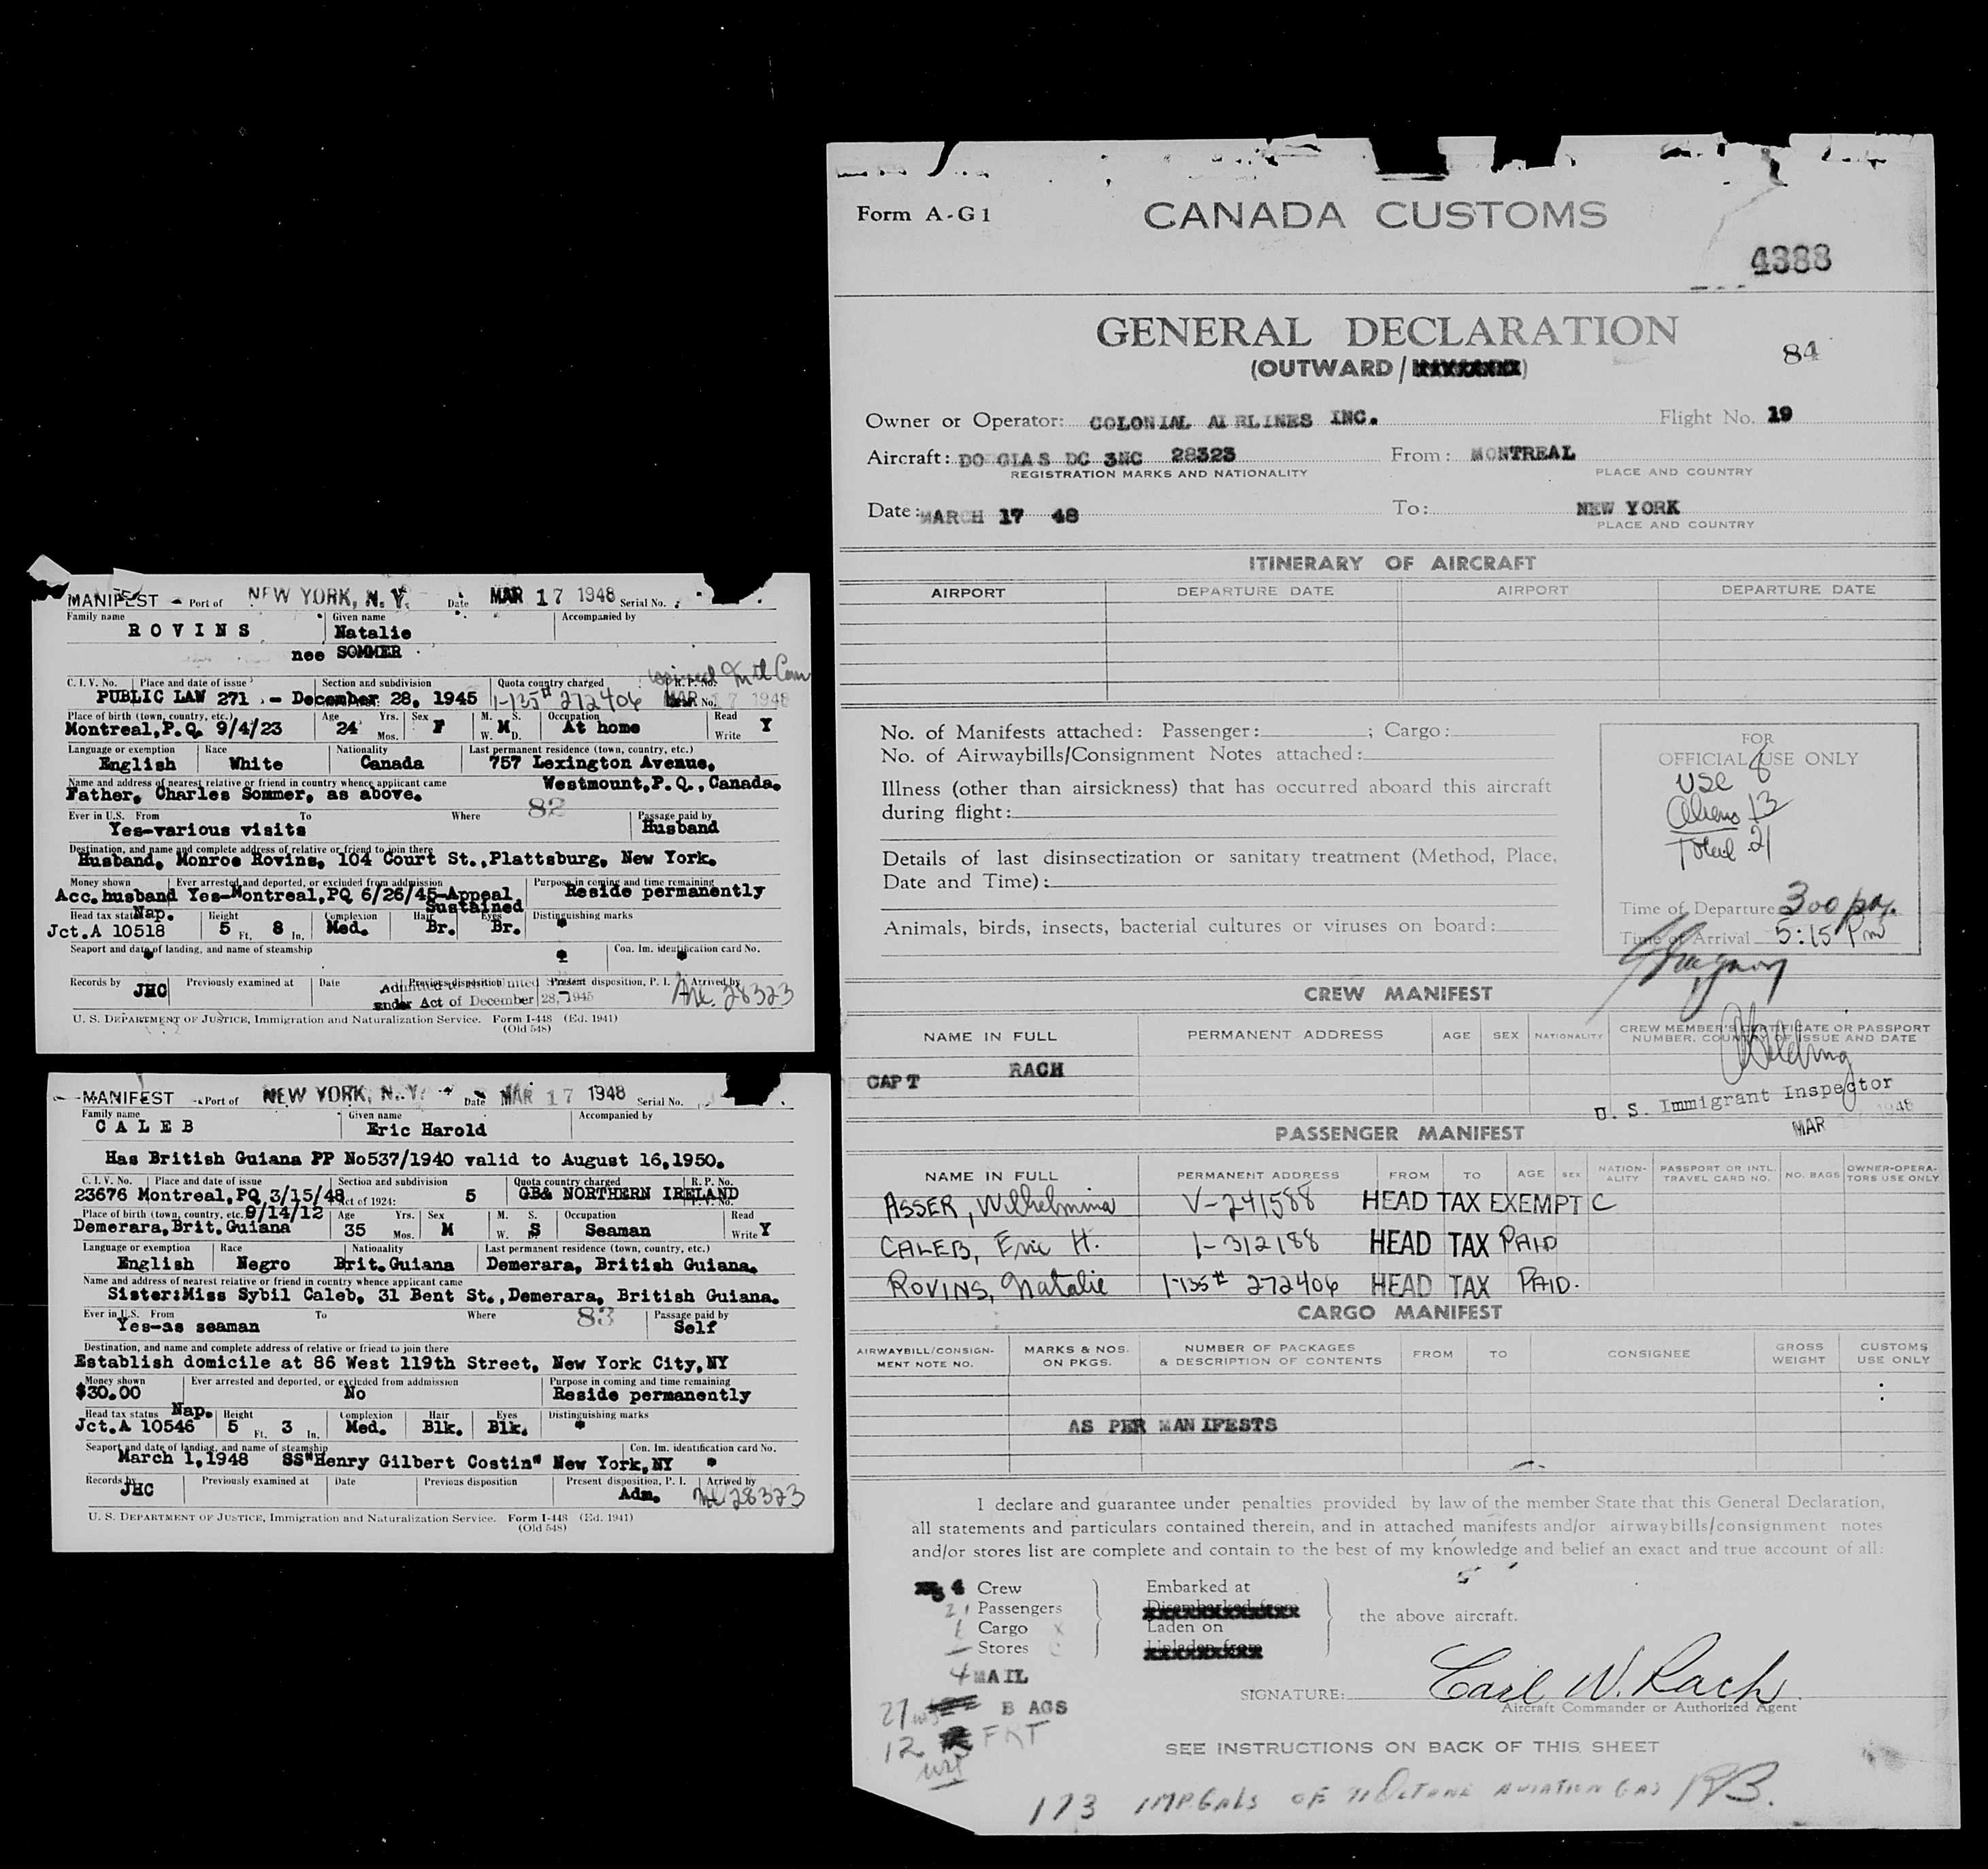 MANIFEST Port of NEW YORK, N. Y. Date MAR 17 1948 Serial No.
Family name Given name Accompanied by
ROVINS Natalie
nee SOMMER
C. I. V. No. Place and date of issue Section and subdivision Quota country charged R. P. No.
PUBLIC LAW 271 - December 28, 1945 1-135# 272406 MAR 17 1948
Place of birth (town, country, etc.) Age Yrs. Mos. Sex M. S. W. D. Occupation Read Write
Montreal, P.Q. 9/4/23 24 F M At home Y
Language or exemption Race Nationality Last permanent residence (town, country, etc.)
English White Canada 757 Lexington Avenue,
Name and address of nearest relative or friend in country whence applicant came Westmount, P.Q., Canada.
Father, Charles Sommer, as above.
Ever in U.S. From To Where 82 Passage paid by
Yes-various visits Husband
Destination, and name and complete address of relative or friend to join there
Husband, Monroe Rovins, 104 Court St., Plattsburg, New York.
Money shown Ever arrested and deported, or excluded from admission Purpose in coming and time remaining
Acc. husband Yes-Montreal, PQ 6/26/45-Appeal Sustained Reside permanently
Head tax status Nap. Height Complexion Hair Eyes Distinguishing marks
Jct.A 10518 5 Ft. 8 In. Med. Br. Br. *
Seaport and date of landing, and name of steamship Con. Im. identification card No.
Records by Previously examined at Date Previous disposition Present disposition, P. I. Arrived by
JHC under Act of December 28, 1945 28323
U. S. DEPARTMENT OF JUSTICE, Immigration and Naturalization Service. Form I-448 (Ed. 1941)
(Old 548)
MANIFEST Port of NEW YORK, N. Y. Date MAR 17 1948 Serial No.
Family name Given name Accompanied by
CALEB Eric Harold
Has British Guiana PP No537/1940 valid to August 16,1950.
C. I. V. No. Place and date of issue Section and subdivision Quota country charged R. P. No.
23676 Montreal, PQ 3/15/48 Act of 1924: 5 GB& NORTHERN IRELAND
Place of birth (town, country, etc.) 9/14/12 Age Yrs. Mos. Sex M. S. W. Occupation Read Write
Demerara, Brit. Guiana 35 M S Seaman Y
Language or exemption Race Nationality Last permanent residence (town, country, etc.)
English Negro Brit.Guiana Demerara, British Guiana.
Name and address of nearest relative or friend in country whence applicant came
Sister:Miss Sybil Caleb, 31 Bent St., Demerara, British Guiana.
Ever in U.S. From To Where 83 Passage paid by
Yes-as seaman Self
Destination, and name and complete address of relative or friend to join there
Establish domicile at 86 West 119th Street, New York City, NY
Money shown Ever arrested and deported, or excluded from admission Purpose in coming and time remaining
$30.00 No Reside permanently
Head tax status Nap. Height Complexion Hair Eyes Distinguishing marks
Jct.A 10546 5 Ft. 3 In. Med. Blk. Blk. *
Seaport and date of landing, and name of steamship Con. Im. identification card No.
March 1,1948 SS"Henry Gilbert Costin" New York, NY *
Records by Previously examined at Date Previous disposition Present disposition, P. I. Arrived by
JHC Adm. 28323
U. S. DEPARTMENT OF JUSTICE, Immigration and Naturalization Service. Form I-448 (Ed. 1941)
(Old 548)
Form A-G1 CANADA CUSTOMS
4388
GENERAL DECLARATION
84
(OUTWARD/
Owner or Operator: COLONIAL AIRLINES INC. Flight No. 19
Aircraft: DOUGLAS DC 3NC 28323 From: MONTREAL
REGISTRATION MARKS AND NATIONALITY PLACE AND COUNTRY
Date: MARCH 17 48 To: NEW YORK
PLACE AND COUNTRY
ITINERARY OF AIRCRAFT
AIRPORT DEPARTURE DATE AIRPORT DEPARTURE DATE
No. of Manifests attached: Passenger: ; Cargo:
No. of Airwaybills/Consignment Notes attached:
Illness (other than airsickness) that has occurred aboard this aircraft
during flight:
Details of last disinsectization or sanitary treatment (Method, Place,
Date and Time):
Animals, birds, insects, bacterial cultures or viruses on board:
FOR
OFFICIAL USE ONLY
USC 8
Aliens 13
Total 21
Time of Departure 3 00 pm.
Time of Arrival 5:15 Pm
CREW MANIFEST
NAME IN FULL PERMANENT ADDRESS AGE SEX NATIONALITY CREW MEMBER'S CERTIFICATE OR PASSPORT
NUMBER, COUNTRY OF ISSUE AND DATE
CAPT RACH
U. S. Immigrant Inspector
MAR 1948
PASSENGER MANIFEST
NAME IN FULL PERMANENT ADDRESS FROM TO AGE SEX NATION-ALITY PASSPORT OR INTL. TRAVEL CARD NO. NO. BAGS OWNER-OPERA-TORS USE ONLY
ASSER, Wilhelmina V-241588 HEAD TAX EXEMPT C
CALEB, Eric H. 1-312188 HEAD TAX PAID
ROVINS, Natalie 1-135# 272406 HEAD TAX PAID.
CARGO MANIFEST
AIRWAYBILL/CONSIGN-MENT NOTE NO. MARKS & NOS. ON PKGS. NUMBER OF PACKAGES & DESCRIPTION OF CONTENTS FROM TO CONSIGNEE GROSS WEIGHT CUSTOMS USE ONLY
AS PER MANIFESTS
I declare and guarantee under penalties provided by law of the member State that this General Declaration,
all statements and particulars contained therein, and in attached manifests and/or airwaybills/consignment notes
and/or stores list are complete and contain to the best of my knowledge and belief an exact and true account of all:
4 Crew Embarked at
21 Passengers Disembarked from the above aircraft.
1 Cargo Laden on
Stores Unladen from
4 MAIL
27 BAGS
12 FRT
SIGNATURE: Carl W. Rach
Aircraft Commander or Authorized Agent
SEE INSTRUCTIONS ON BACK OF THIS SHEET
173 IMP.GALS OF OCTANE AVIATION GAS RB.